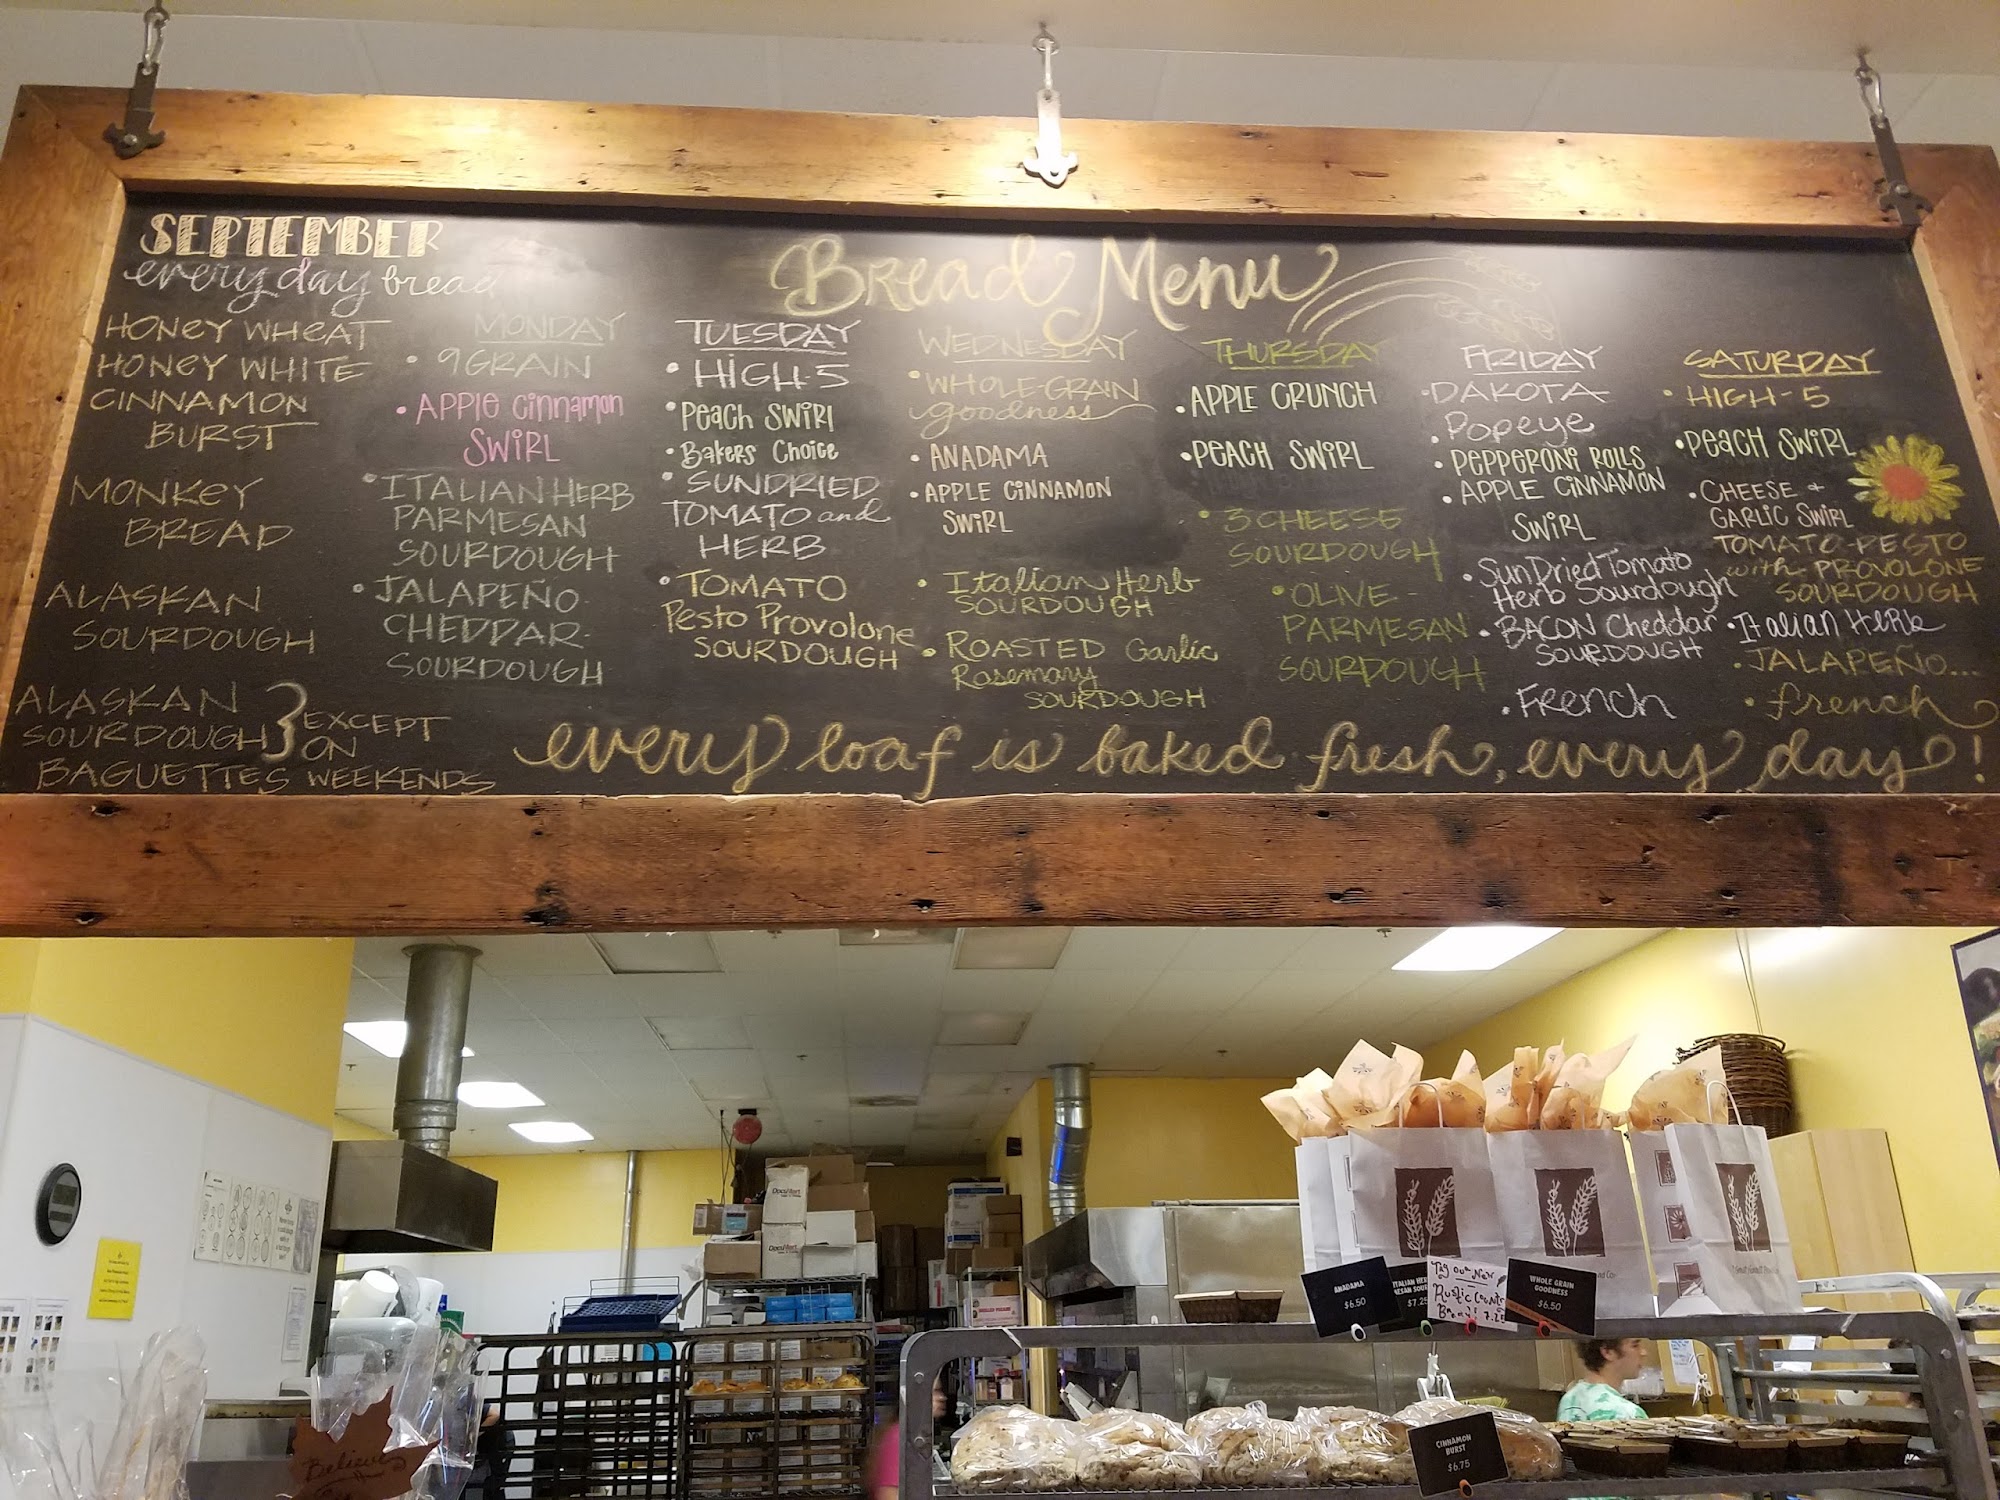 SEPTEMBER
every day bread
HONEY WHEAT
HONEY WHITE
CINNAMON
BURST
MONKEY
BREAD
ALASKAN
SOURDOUGH
ALASKAN
SOURDOUGH
BAGUETTES
} EXCEPT
ON
WEEKENDS
Bread Menu
MONDAY
• 9 GRAIN
• APPLE Cinnamon
SWIRL
• ITALIAN HERB
PARMESAN
SOURDOUGH
• JALAPEÑO-
CHEDDAR-
SOURDOUGH
TUESDAY
• HIGH-5
• PEACH SWIRL
• BAKERS CHOICE
• SUNDRIED
TOMATO and
HERB
• TOMATO
Pesto Provolone
SOURDOUGH
WEDNESDAY
• WHOLE-GRAIN
goodness
• ANADAMA
• APPLE CINNAMON
SWIRL
• Italian Herb
SOURDOUGH
• ROASTED Garlic
Rosemary
SOURDOUGH
THURSDAY
• APPLE CRUNCH
• PEACH SWIRL
• 3 CHEESE
SOURDOUGH
• OLIVE-
PARMESAN
SOURDOUGH
FRIDAY
• DAKOTA
• Popeye
• PEPPERONI ROLLS
• APPLE CINNAMON
SWIRL
• Sun Dried Tomato
Herb Sourdough
• BACON Cheddar
SOURDOUGH
• French
SATURDAY
• HIGH-5
• PEACH SWIRL
• CHEESE +
GARLIC SWIRL
TOMATO-PESTO
with PROVOLONE
SOURDOUGH
• Italian Herb
• JALAPEÑO...
• french
every loaf is baked fresh, every day!
DocuMart
DocuMart
ANADAMA
$6.50
ITALIAN HER
$7.25
Try our New
Rustic
7.25
WHOLE GRAIN
GOODNESS
$6.50
CINNAMON
BURST
$6.75
Believe